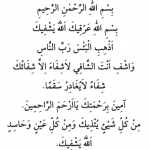 بِسْمِ اللهِ الرَّحْمٰنِ الرَّحِيْمِ
بِسْمِ اللهِ عَرْقِيْكَ اَللهُ يَشْفِيْكَ
اَذْهِبِ الْبَأْسَ رَبَّ النَّاسِ
وَاشْفِ اَنْتَ الشَّافِي لَاشِفَاءَ اِلاَّ شِفَائُكَ
شِفَاءً لَايُغَادِرُ سَقَمًا.
آمِينَ بِرَحْمَتِكَ يَااَرْحَمَ الرَّاحِمِينَ.
مِنْ كُلِّ شَيْئٍ يُئْذِيْكَ وَمِنْ كُلِّ عَيْنٍ وَحَاسِدٍ
اَللهُ يَشْفِيْكَ.